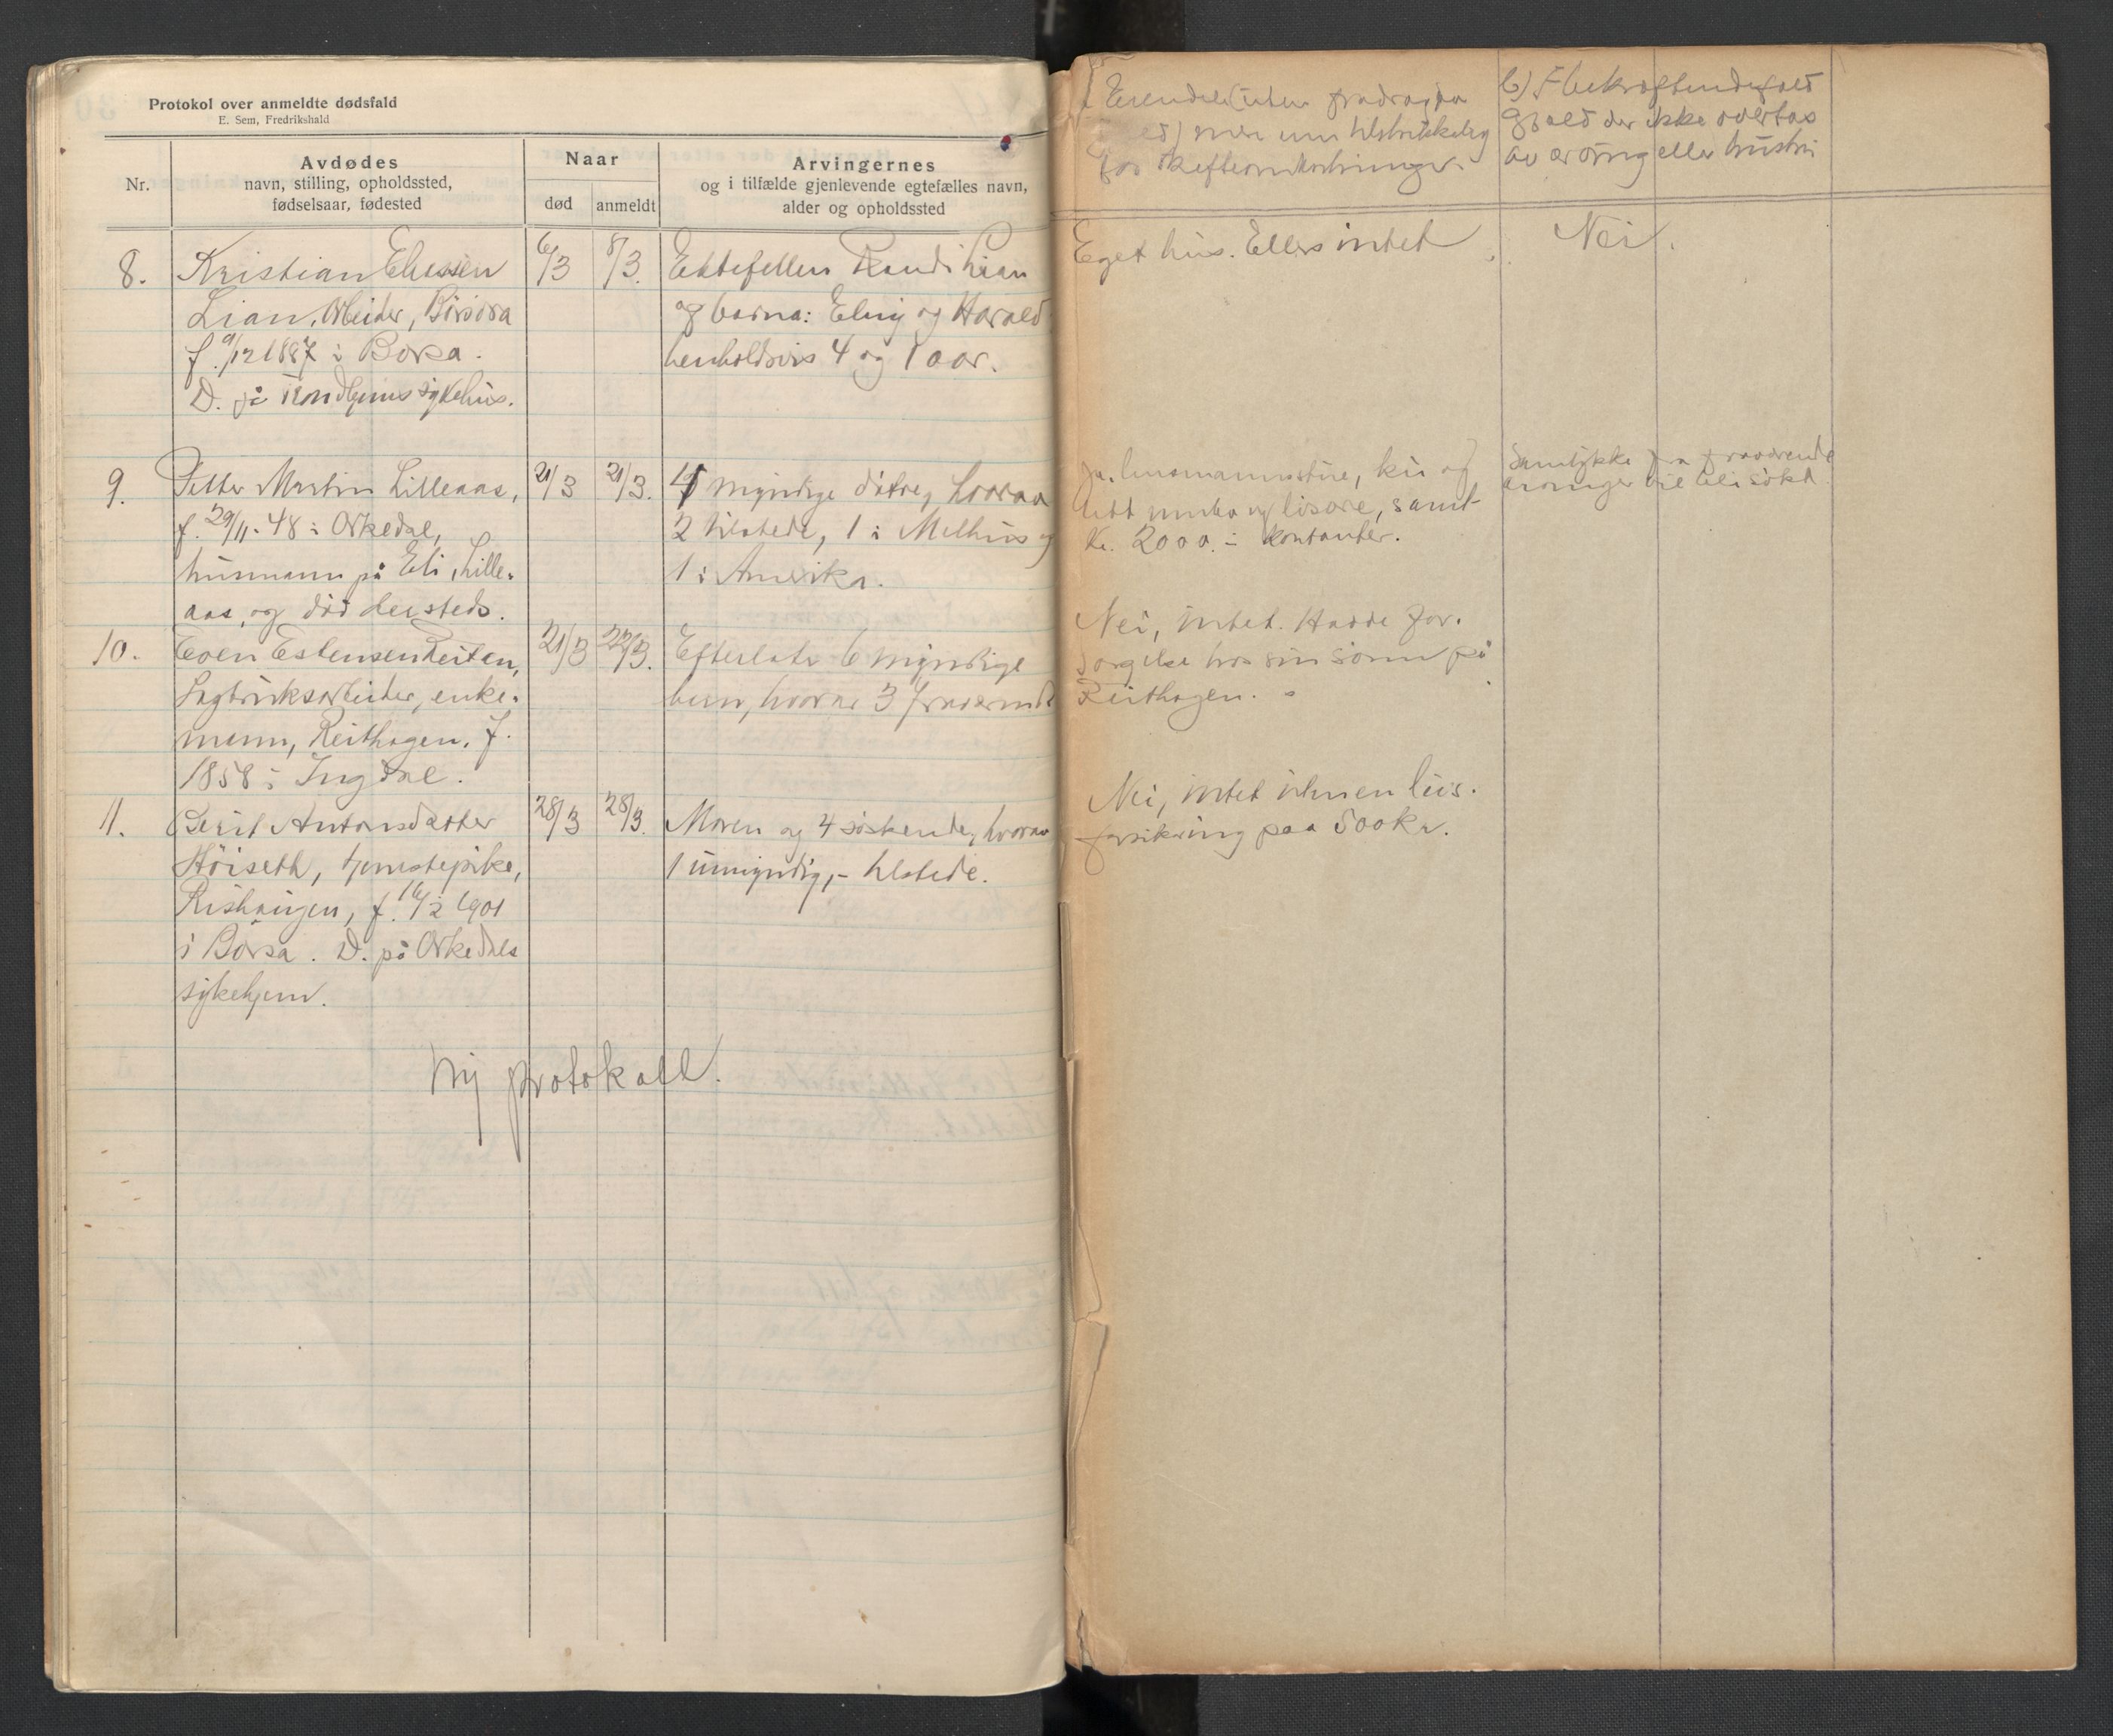 Protokol over anmeldte dødsfald
E. Sem, Fredrikshald
Nr.
Avdødes
navn, stilling, opholdssted,
fødselsaar, fødested
Naar
død
anmeldt
Arvingernes
og i tilfælde gjenlevende egtefælles navn,
alder og opholdssted
8.
Kristian
Lian, Arbeider, Börsöra
f. 9/12 1887 i Borsa.
D. på Trondhjems sykehus.
6/3
8/3.
Ektefellen Randi Lian
og barna: og Harald
henholdsvis 4 og 1 aar.
9.
Petter Martin Lilleaas,
f. 29/11-48 i Orkedal,
husmann på Eli, Lille-
aas, og död dersteds.
21/3
21/3.
myndige døtre, hvorav
2 tilstede, 1 i Melhus og
1 i Amerika.
10.
Even Estensen Reitan,
Sagbruksarbeider, enke-
mann, Reithagen, f.
1858 i Ingdal.
21/3
22/3.
Efterlater 6 myndige
barn, hvorav 3 fraværende
11.
Berit Antonsdatter
Höiseth, tjenestepike,
Rishaugen, f. 16/2 1901
i Börsa. D. på Orkedals
sykehjem.
28/3
28/3.
Moren og 4 söskende, hvorav
1 umyndig, - tilstede.
Ny protokoll.
Eiendele (uten fradrag for
mer enn tilstrekkelig
for
b) I bekræftende fald
gjæld der ikke overtas
av arving eller hustru
Eget hus. Ellers intet
Nei.
Ja, husmannsstue, ku og
litt innbo og lösöre, samt
Kr. 2000.- i kontanter.
Samtykke fra fraværende
arvinger vil bli sökt
Nei, intet. Hadde for-
sörgelse hos sin sönn på
Reithagen.
Nei, intet uten en livs-
forsikring paa 500 kr.